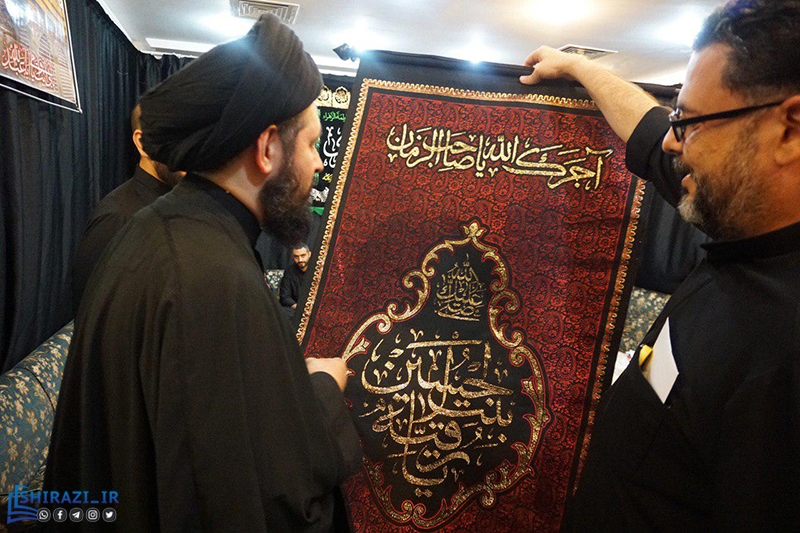 آجرك الله يا صاحب الزمان
صلى الله عليك
يا رقية بنت الحسين
SHIRAZI_IR